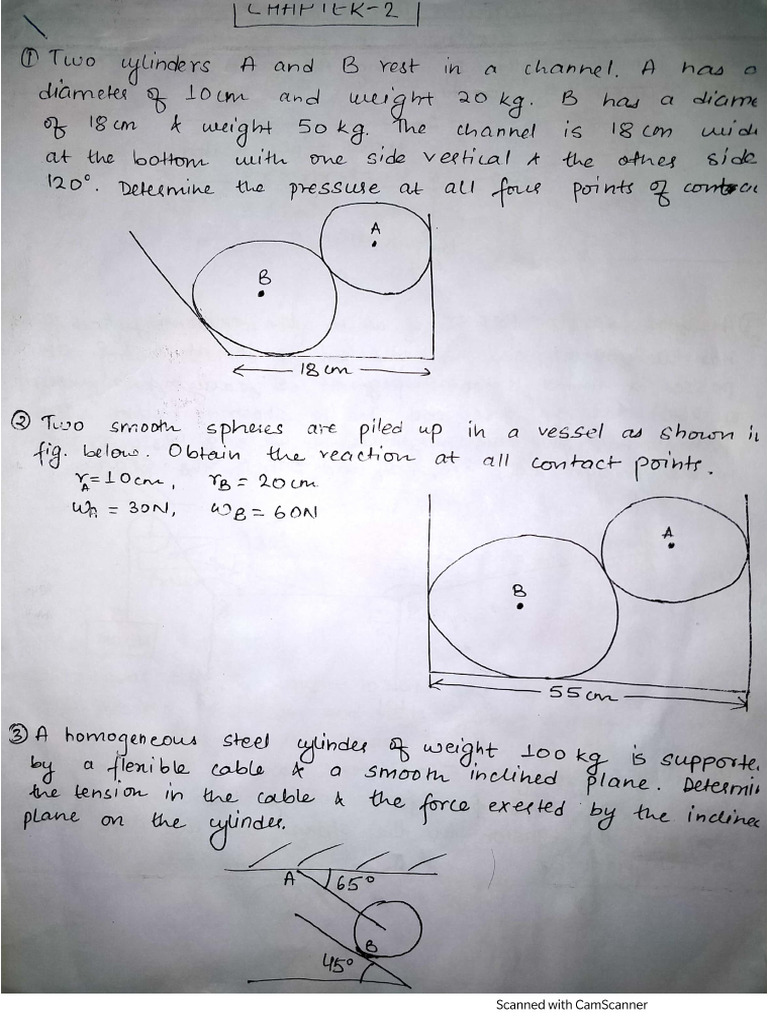 CHAPTER-2
① Two cylinders A and B rest in a channel. A has a
diameter of 10 cm and weight 20 kg. B has a diame
of 18 cm & weight 50 kg. The channel is 18 cm wide
at the bottom with one side vertical & the other side
120°. Determine the pressure at all four points of contac
A
B
18 cm
② Two smooth spheres are piled up in a vessel as shown in
fig. below. Obtain the reaction at all contact points.
rA = 10 cm, rB = 20 cm
wA = 30N, wB = 60N
A
B
55 cm
③ A homogeneous steel cylinder of weight 100 kg is supporte
by a flexible cable & a smooth inclined plane. Determin
the tension in the cable & the force exerted by the incline
plane on the cylinder.
A
65°
B
45°
Scanned with CamScanner